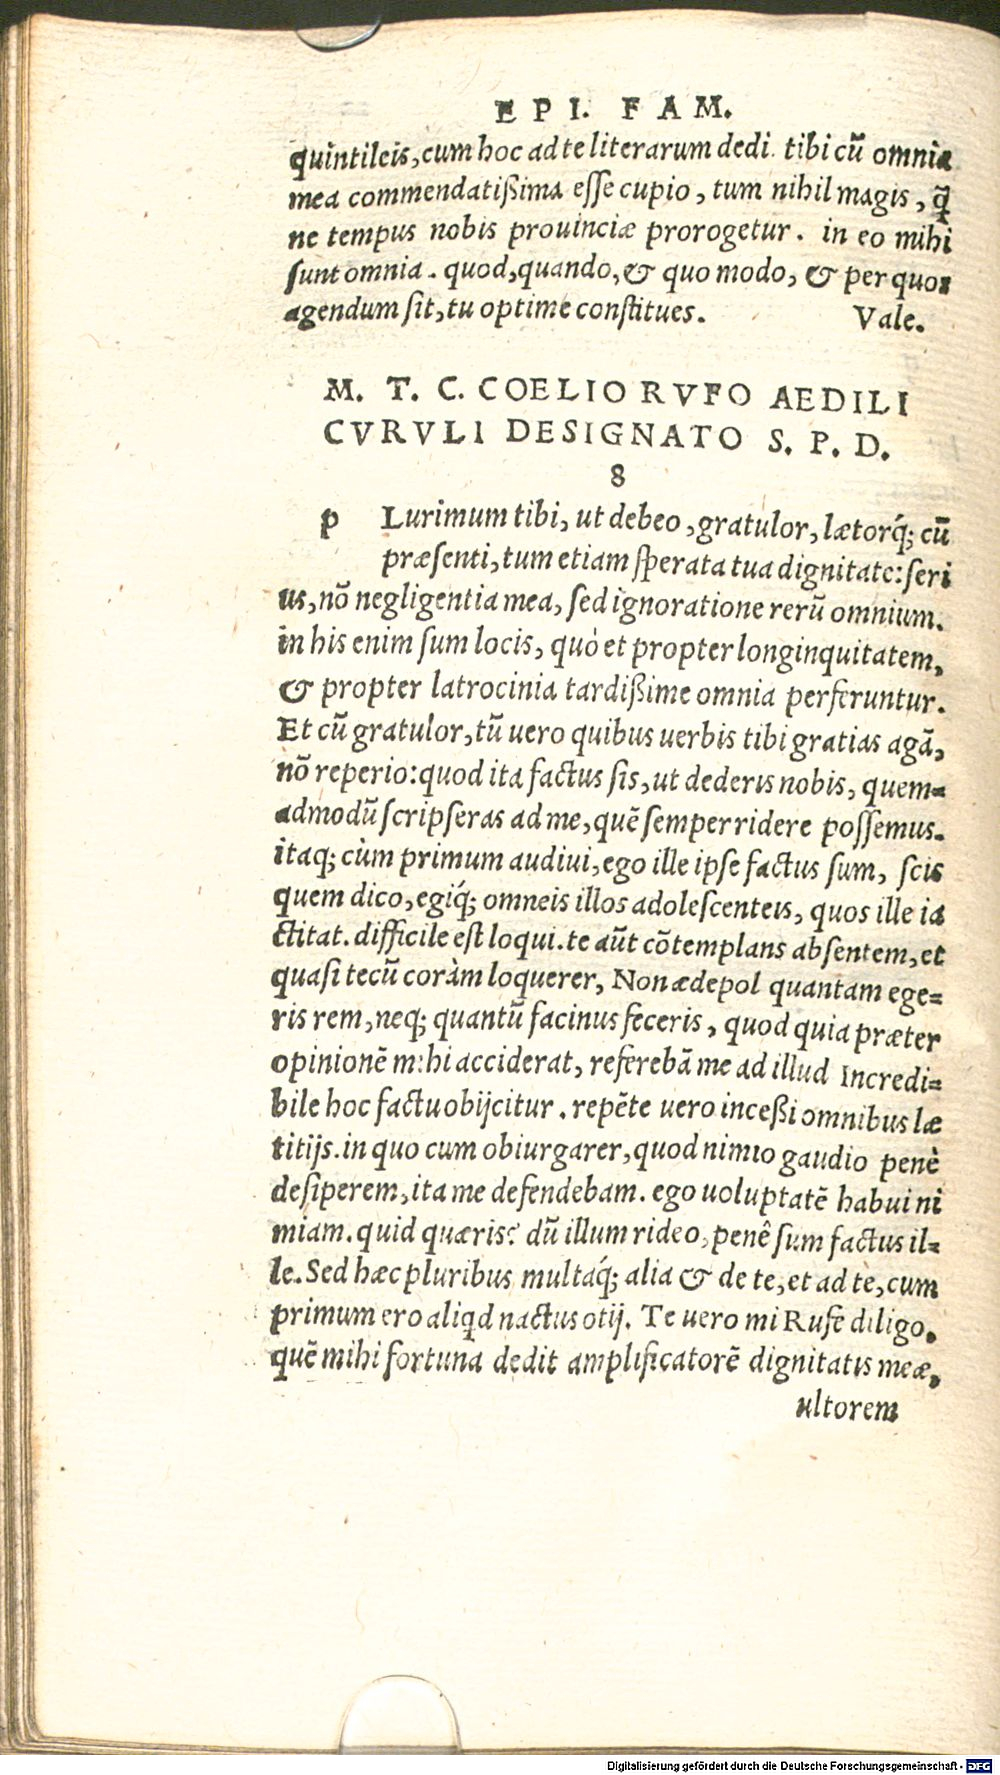 EPI. FAM.
quintileis, cum hoc ad te literarum dedi. tibi cũ omnia
mea commendatißima esse cupio, tum nihil magis, q̃
ne tempus nobis prouinciæ prorogetur. in eo mihi
sunt omnia. quod, quando, & quo modo, & per quos
agendum sit, tu optime constitues. Vale.
M. T. C. COELIO RVFO AEDILI
CVRVLI DESIGNATO S. P. D.
8
p Lurimum tibi, ut debeo, gratulor, lætorq́; cũ
præsenti, tum etiam sperata tua dignitate: seri
us, nõ negligentia mea, sed ignoratione rerũ omnium.
in his enim sum locis, quò et propter longinquitatem,
& propter latrocinia tardißime omnia perferuntur.
Et cũ gratulor, tũ uero quibus uerbis tibi gratias agã,
nõ reperio: quod ita factus sis, ut dederis nobis, quem-
admodũ scripseras ad me, quẽ semper ridere possemus.
itaq; cùm primum audiui, ego ille ipse factus sum, scis
quem dico, egiq́; omneis illos adolescenteis, quos ille ia
ctitat. difficile est loqui. te aũt cõtemplans absentem, et
quasi tecũ coràm loquerer, Non ædepol quantam ege=
ris rem, neq; quantũ facinus feceris, quod quia præter
opinionẽ mihi acciderat, referebã me ad illud Incredi=
bile hoc factu obijcitur. repẽte uero inceßi omnibus læ
titijs. in quo cum obiurgarer, quod nimio gaudio penè
desiperem, ita me defendebam. ego uoluptatẽ habui ni
miam. quid quæris? dũ illum rideo, penê sum factus il-
le. Sed hæc pluribus multaq́; alia & de te, et ad te, cum
primum ero aliqd nactus otij. Te uero mi Rufe diligo,
quẽ mihi fortuna dedit amplificatorẽ dignitatis meæ,
ultorem
Digitalisierung gefördert durch die Deutsche Forschungsgemeinschaft - DFG